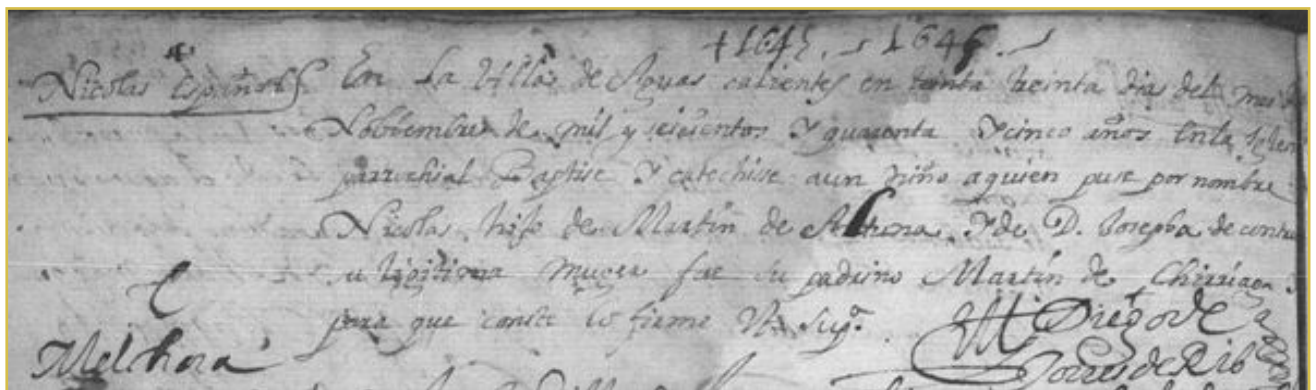 + 1645. 1646.
Nicolas Español
En la Villa de Aguas calientes en treinta dias del mes
Nobiembre de mil y seicientos y quarenta y cinco años En la
parrochial Baptise y catechise a un niño a quien puse por nombre
Nicolas hijo de Martin de y de D. Josepha de
su legitima muger fue su padrino Martin de
para que conste lo firme Vt supª.
Diego de
Torres de
Melchora